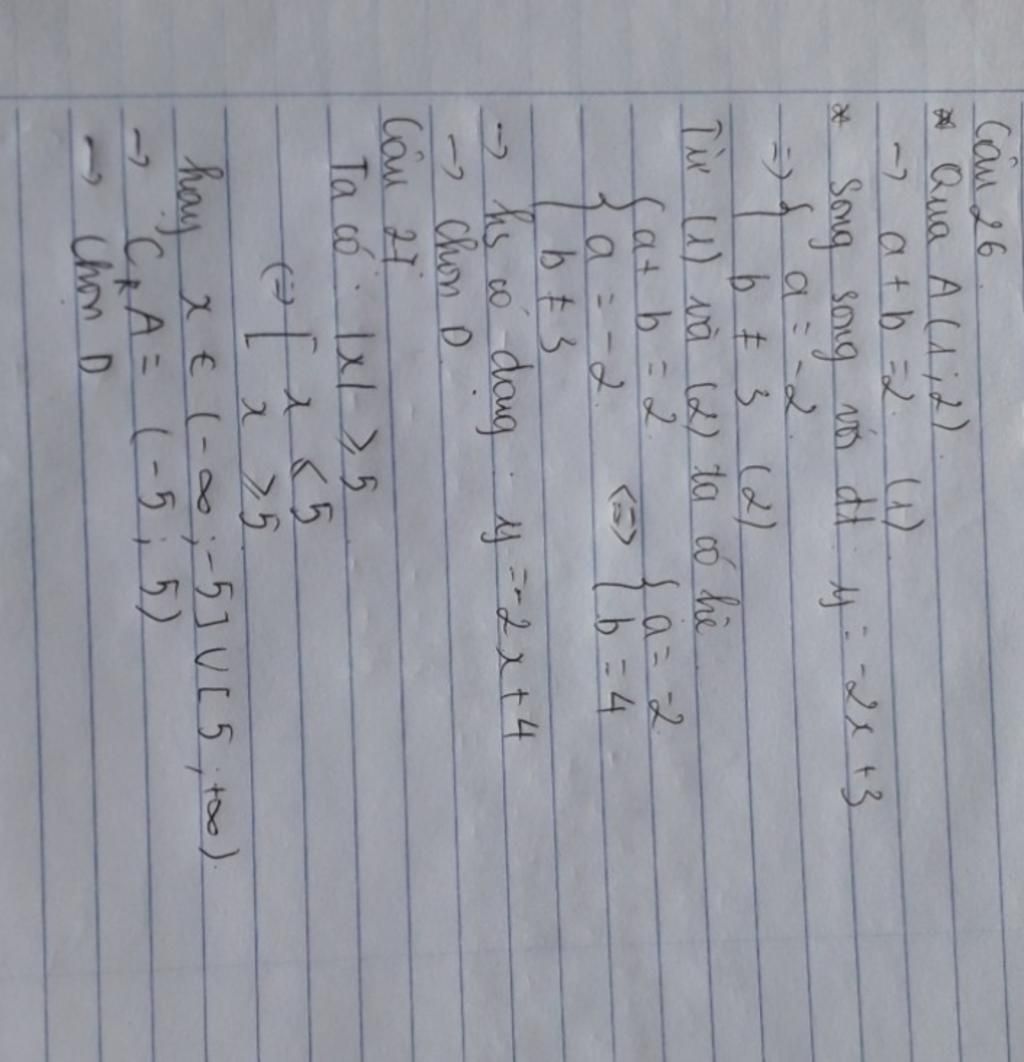 Câu 26
* Qua A(1;2)
→ a + b = 2 (1)
* Song song với đt y = -2x + 3
=> { a = -2
b ≠ 3 (2)
Từ (1) và (2) ta có hệ
{ a + b = 2
a = -2 <=> { a = -2
b ≠ 3 b = 4
→ hs có dạng: y = -2x + 4
→ Chọn D
Câu 27
Ta có: |x| ⩾ 5
(=) [ x ⩽ 5
x ⩾ 5
hay x ∈ (-∞; -5] ∪ [5; +∞)
→ C_R A = (-5; 5)
→ Chọn D